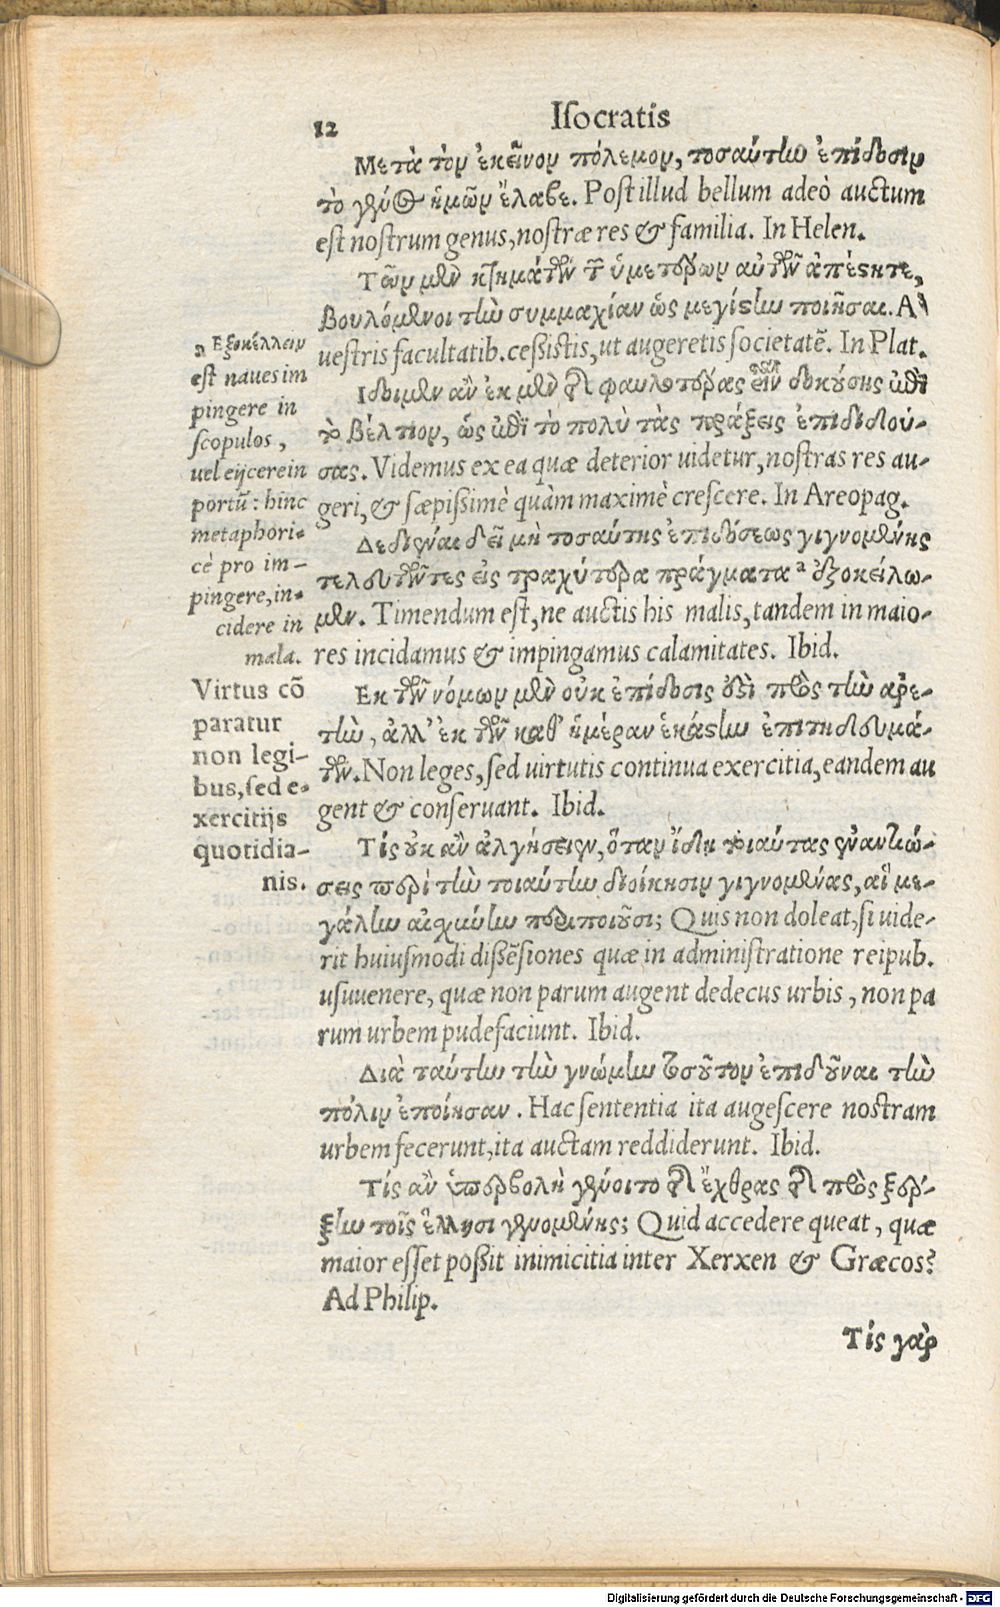 12 Iſocratis
Μετὰ τὸν ἐκεῖνον πόλεμον, τοσαύτην ἐπίδοσιν
τὸ γένος ἡμῶν ἔλαβε. Poſt illud bellum adeò auctum
eſt noſtrum genus, noſtræ res & familia. In Helen.
Τῶν μὲν κτημάτων τῶν ὑμετέρων αὐτῶν ἀπέστητε,
βουλόμενοι τὴν συμμαχίαν ὡς μεγίστην ποιῆσαι. A
ueſtris facultatib. ceßiſtis, ut augeretis ſocietatẽ. In Plat.
Ιδοιμεν ἂν ἐκ μὲν τῆς φαυλοτέρας εἶναι δοκούσης ἐπὶ
τὸ βέλτιον, ὡς ἐπὶ τὸ πολὺ τὰς πράξεις ἐπιδιδού-
σας. Videmus ex ea quæ deterior uidetur, noſtras res au-
geri, & ſæpißimè quàm maximè creſcere. In Areopag.
Δεδιέναι δεῖ μὴ τοσαύτης ἐπιδόσεως γιγνομένης
τελευτῶντες εἰς τραχύτερα πράγματα a ἐξοκείλω-
μεν. Timendum eſt, ne auctis his malis, tandem in maio-
res incidamus & impingamus calamitates. Ibid.
Εκ τῶν νόμων μὲν οὐκ ἐπίδοσις ἐστὶ πρὸς τὴν ἀρε-
τὴν, ἀλλ' ἐκ τῶν καθ' ἡμέραν ἑκάστην ἐπιτηδευμά-
των. Non leges, ſed uirtutis continua exercitia, eandem au
gent & conſeruant. Ibid.
Τίς οὐκ ἂν ἀλγήσειεν, ὅταν ἴδῃ τοιαύτας ἐναντιώ-
σεις περὶ τὴν τοιαύτην διοίκησιν γιγνομένας, αἳ με-
γάλην αἰσχύνην περιποιοῦσι; Quis non doleat, ſi uide-
rit huiuſmodi dißẽſiones quæ in adminiſtratione reipub.
uſuuenere, quæ non parum augent dedecus urbis, non pa
rum urbem pudefaciunt. Ibid.
Διὰ ταύτην τὴν γνώμην τοσοῦτον ἐπιδοῦναι τὴν
πόλιν ἐποίησαν. Hac ſententia ita augeſcere noſtram
urbem fecerunt, ita auctam reddiderunt. Ibid.
Τίς ἂν ὑπερβολὴ γένοιτο τῆς ἔχθρας τῆς πρὸς ξέρ-
ξην τοῖς ἕλλησι γενομένης; Quid accedere queat, quæ
maior eſſet poßit inimicitia inter Xerxen & Græcos?
Ad Philip.
Τίς γὰρ
a Εξοκέλλειν
eſt naues im
pingere in
ſcopulos,
uel eijcere in
portũ: hinc
metaphori-
cè pro im-
pingere, in-
cidere in
mala.
Virtus cõ
paratur
non legi-
bus, ſed e-
xercitijs
quotidia-
nis.
Digitalisierung gefördert durch die Deutsche Forschungsgemeinschaft - DFG